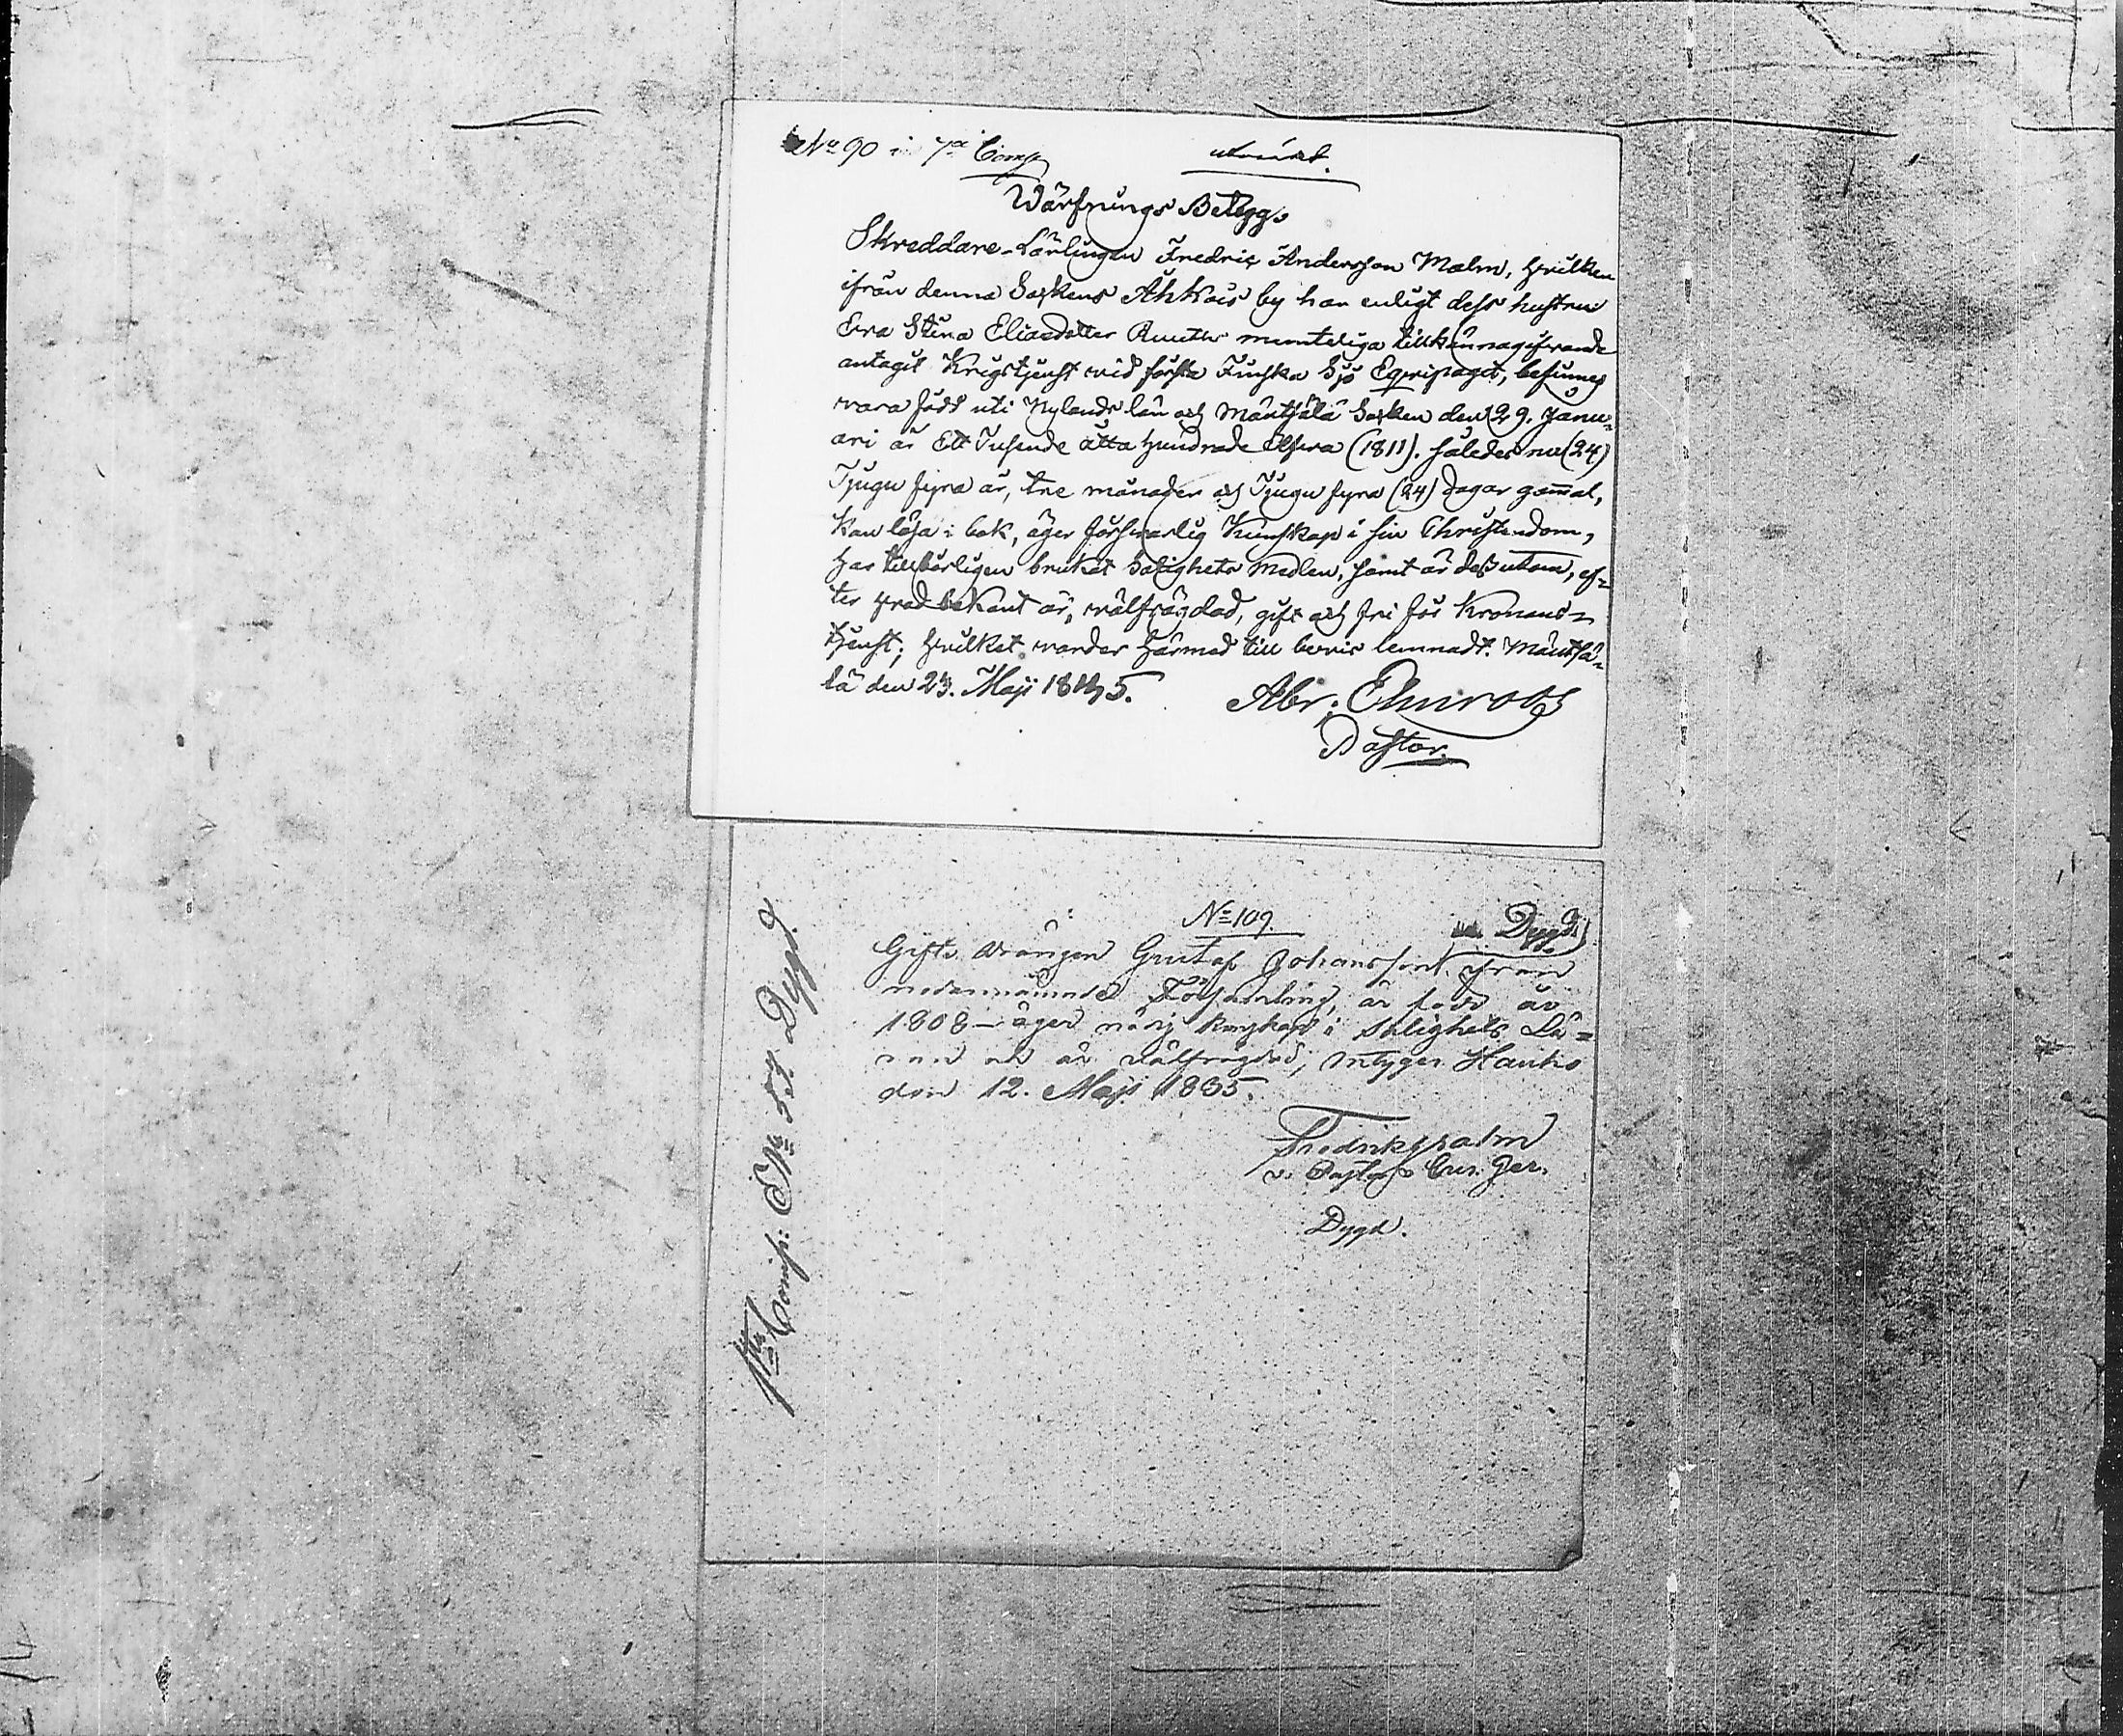 No 90 i 7de Comp
Wärfnings Belägg.
Skreddare-Lärlingen Fredric Andersson Malm, hvilken
ifrån denna Sockens Ahkois by har enligt dess hustru
Eva Stina Eliaedotter munteliga tillkännagifvande
antagit Krigstjenst vid första Finska Sjö Equipaget, befinnes
vara född uti Nylands län och Mäntsälä Socken den 29. Janu-
ari år Ett Tusende åtta hundrade Elfva (1811). således nu (24)
Tjugu fyra år, tre månader och Tjugu fyra (24) dagar gam̄al,
kan läsa i bok, äger försvarlig Kunskap i sin Christendom,
har tillbörligen brukat Salighets Medlen, samt är dessutom, ef-
ter hvad bekant är, välfrägdad, gift och fri för Kronans-
tjenst; hvilket varder härmed till bevis lemnadt. Mäntsä-
lä den 23. Maji 1835.
Abr. Elmroth
Pastor.
No 109. Dygd
Gifte drängen Gustaf Johansson från
nedannämnde Församling, är född år
1808 — äger nödig kunskap i Salighets Lä-
ran och är välfrägdad; intygar Hauho
den 12. Maji 1835.
Fredrik
v. Pastor
Dygd.
1sta Comp: No 53. Dygd.